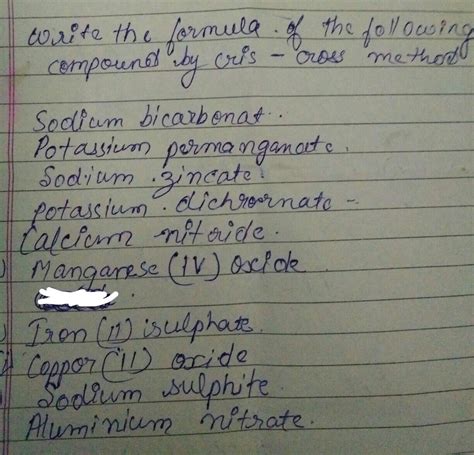 write the formula. of the following
compound by cris - cross method
Sodium bicarbonat..
Potassium permanganate.
Sodium .zincate.
potassium . dichromate -
Calcium nitride.
) Manganese (IV) oxide
) Iron (II) sulphate.
Coppor (II) oxide
Sodium sulphite.
Aluminium nitrate.